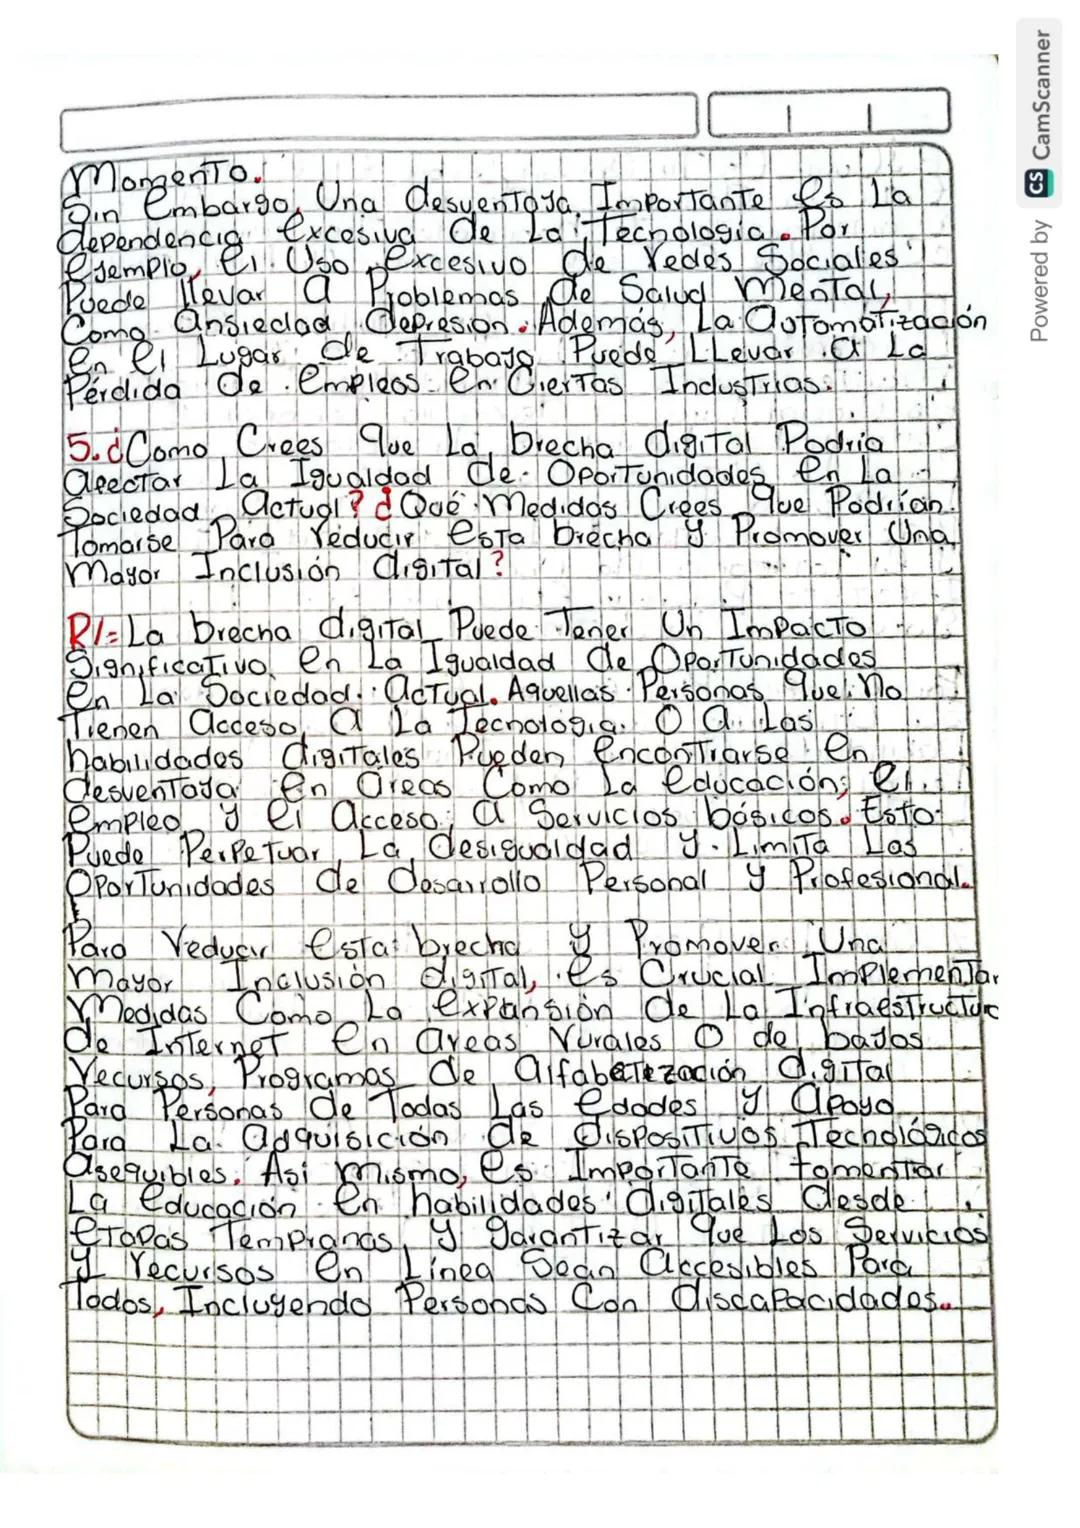 Momento.
Sin embargo, Una desventaja Importante es La
dependencia excesiva de La Tecnologia. Por
ejemplo, el Uso excesivo de redes Sociales
Puede llevar a Problemas de Salud mental,
Como ansiedad, depresion. Además, La automatización
en el Lugar de Trabajo Puede LLevar a La
Pérdida de empleos en Ciertas Industrias.
5. ¿Como Crees que La brecha digital Podria
afectar La Igualdad de Oportunidades en La
Sociedad actual? ¿Qué Medidas Crees que Podrían
Tomarse Para reducir esta brecha y Promover Una
mayor Inclusión digital?
R/= La brecha digital Puede Tener Un Impacto
Significativo en La Igualdad de Oportunidades
en La Sociedad actual. Aquellas Personas que no
Tienen acceso a La Tecnologia O a Las
habilidades digitales Pueden encontrarse en
desventaja en áreas Como La educación, el
empleo y el acceso a Servicios básicos. Esto
Puede Perpetuar La desigualdad y Limita Las
Oportunidades de desarrollo Personal y Profesional.
Para reducir esta brecha y Promover Una
mayor Inclusión digital, es Crucial Implementar
Medidas Como La expansión de La Infraestructura
de Internet en areas rurales O de bajos
recursos, Programas de alfabetezación digital
Para Personas de Todas Las edades y apoyo
Para La adquisición de dispositivos Tecnológicos
asequibles. Asi mismo, es Importante fomentar
La educación en habilidades digitales desde
etapas Tempranas, y garantizar que Los Servicios
y recursos en Línea Sean accesibles Para
Todos, Incluyendo Personas Con discapacidades.
Powered by CS CamScanner